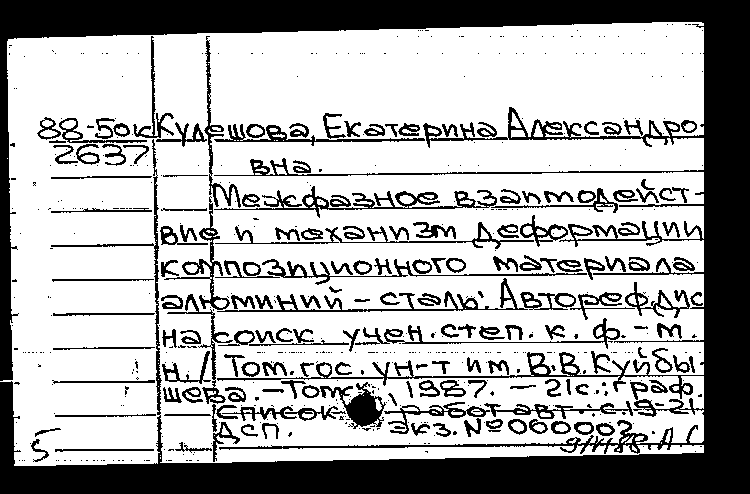 88-5ок Кулешова, Екатерина Александро-
2637 вна.
Межфазное взаимодейст-
вие и механизм деформации
композиционного материала
алюминий – сталь: Автореф. дис
на соиск. учен. степ. к. ф.-м.
н. / Том. гос. ун-т им. В.В. Куйбы-
шева. – Томск, 1987. – 21с.: граф.
Список работ авт.: с.19-21
ДСП. Экз. № 000002
5